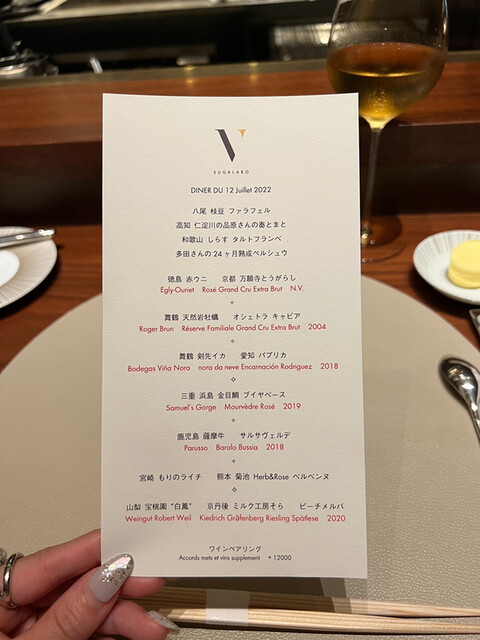 V
SUGALABO
DINER DU 12 Juillet 2022
八尾 枝豆 ファラフェル
高知 仁淀川の品原さんの奏とまと
和歌山 しらす タルトフランベ
多田さんの24ヶ月熟成ペルシュウ
徳島 赤ウニ 京都 万願寺とうがらし
Egly-Ouriet Rosé Grand Cru Extra Brut N.V.
舞鶴 天然岩牡蠣 オシェトラ キャビア
Roger Brun Réserve Familiale Grand Cru Extra Brut 2004
舞鶴 剣先イカ 愛知 パプリカ
Bodegas Viña Nora nora da neve Encarnación Rodriguez 2018
三重 浜島 金目鯛 ブイヤベース
Samuel's Gorge Mourvèdre Rosé 2019
鹿児島 薩摩牛 サルサヴェルデ
Parusso Barolo Bussia 2018
宮崎 もりのライチ 熊本 菊池 Herb&Rose ペルペンヌ
山梨 宝桃園 "白鳳" 京丹後 ミルク工房そら ピーチメルバ
Weingut Robert Weil Kiedrich Gräfenberg Riesling Spätlese 2020
ワインペアリング
Accords mets et vins supplement +12000